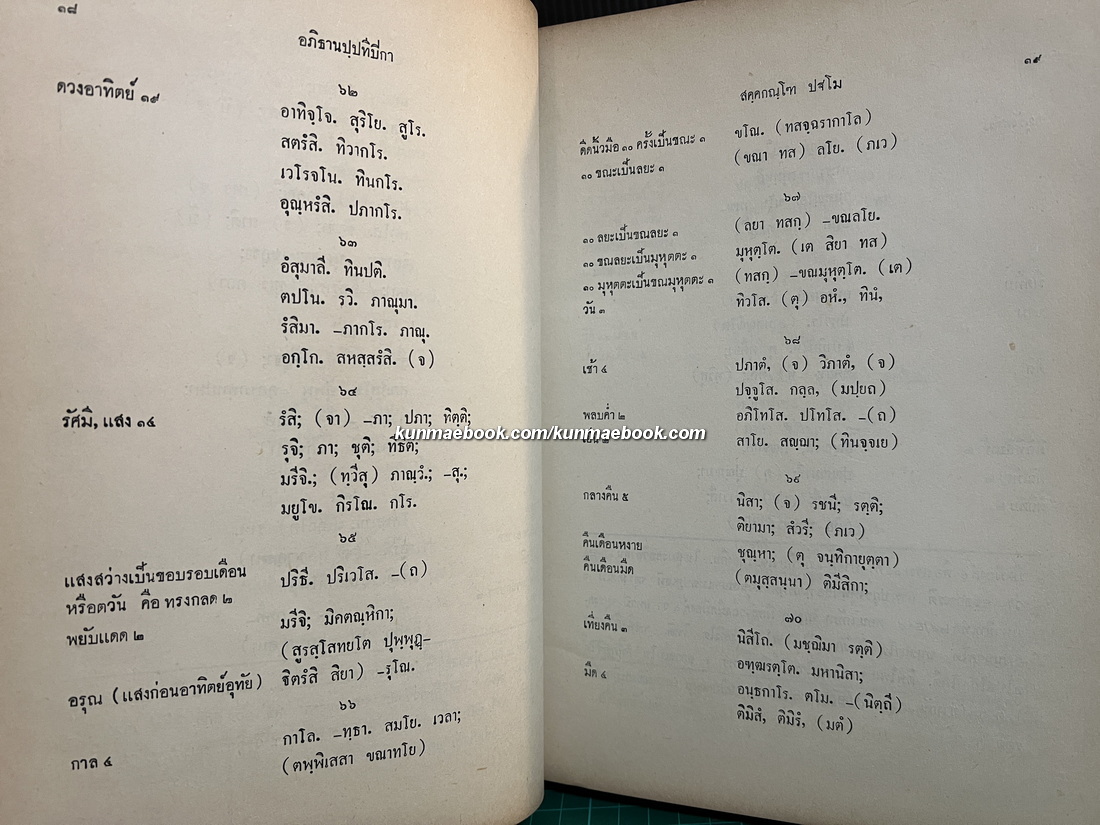 ๑๘
อภิธานปฺปทีปิกา
ดวงอาทิตย์ ๑๙
๖๒
อาทิจฺโจ. สุริโย. สูโร.
สตรํสิ. ทิวากโร.
เวโรจโน. ทินกโร.
อุณฺหรํสิ. ปภากโร.
๖๓
อํสุมาลี. ทินปติ.
ตปโน. รวิ. ภาณุมา.
รํสิมา. –ภากโร. ภาณุ.
อกฺโก. สหสฺสรํสิ. (จ)
๖๔
รัศมี, แสง ๑๔
รํสิ; (จา) –ภา; ปภา; ทิตฺติ;
รุจิ; ภา; ชุติ; ทีธิติ;
มรีจิ.; (ทฺวีสุ) ภาณฺวํ.; –สุ.;
มยูโข. กิรโณ. กโร.
๖๕
แสงสว่างเป็นขอบรอบเดือน
หรือตวัน คือ ทรงกลด ๒
ปริธี. ปริเวโส. –(ถ)
พยับแดด ๒
มรีจิ; มิคตณฺหิกา;
(สูรสฺโสทยโต ปุพฺพุฏฺ–
อรุณ (แสงก่อนอาทิตย์อุทัย)
ฐิตรํสิ สิยา) –รุโณ.
๖๖
กาล ๔
กาโล. –ทฺธา. สมโย. เวลา;
(ตพฺพิเสสา ขณาทโย)
๑๙
สคฺคกณฺโฑ ปฐโม
ดีดนิ้วมือ ๑๐ ครั้งเป็นขณะ ๑
ขโณ. (ทสจฺฉรากาโล)
๑๐ ขณะเป็นลยะ ๑
(ขณา ทส) ลโย. (ภเว)
๖๗
๑๐ ลยะเป็นขณลยะ ๑
(ลยา ทสกฺ) –ขณลโย.
๑๐ ขณลยะเป็นมุหุตตะ ๑
มุหุตฺโต. (เต สิยา ทส)
๑๐ มุหุตตะเป็นขณมุหุตตะ ๑
(ทสกฺ) –ขณมุหุตฺโต. (เต)
วัน ๓
ทิวโส. (ตุ) อหํ., ทินํ,
๖๘
เช้า ๔
ปภาตํ, (จ) วิภาตํ, (จ)
ปจฺจูโส. กลฺล, (มปฺยถ)
พลบค่ำ ๒
อภิโทโส. ปโทโส. –(ถ)
kunmaebook.com/kunmaebook.com
สาโย. สญฺฌา; (ทินจฺจเย)
๖๙
กลางคืน ๕
นิสา; (จ) รชนี; รตฺติ;
ติยามา; สํวรี; (ภเว)
คืนเดือนหงาย
ชุณฺหา; (ตุ จนฺทิกายุตฺตา)
คืนเดือนมืด
(ตมุสฺสนฺนา) ติมีสิกา;
๗๐
เที่ยงคืน ๓
นิสีโถ. (มชฺฌิมา รตฺติ)
อฑฺฒรตฺโต. มหานิสา;
มืด ๔
อนฺธกาโร. ตโม. –(นิตฺถี)
ติมิสํ, ติมิรํ, (มตํ)